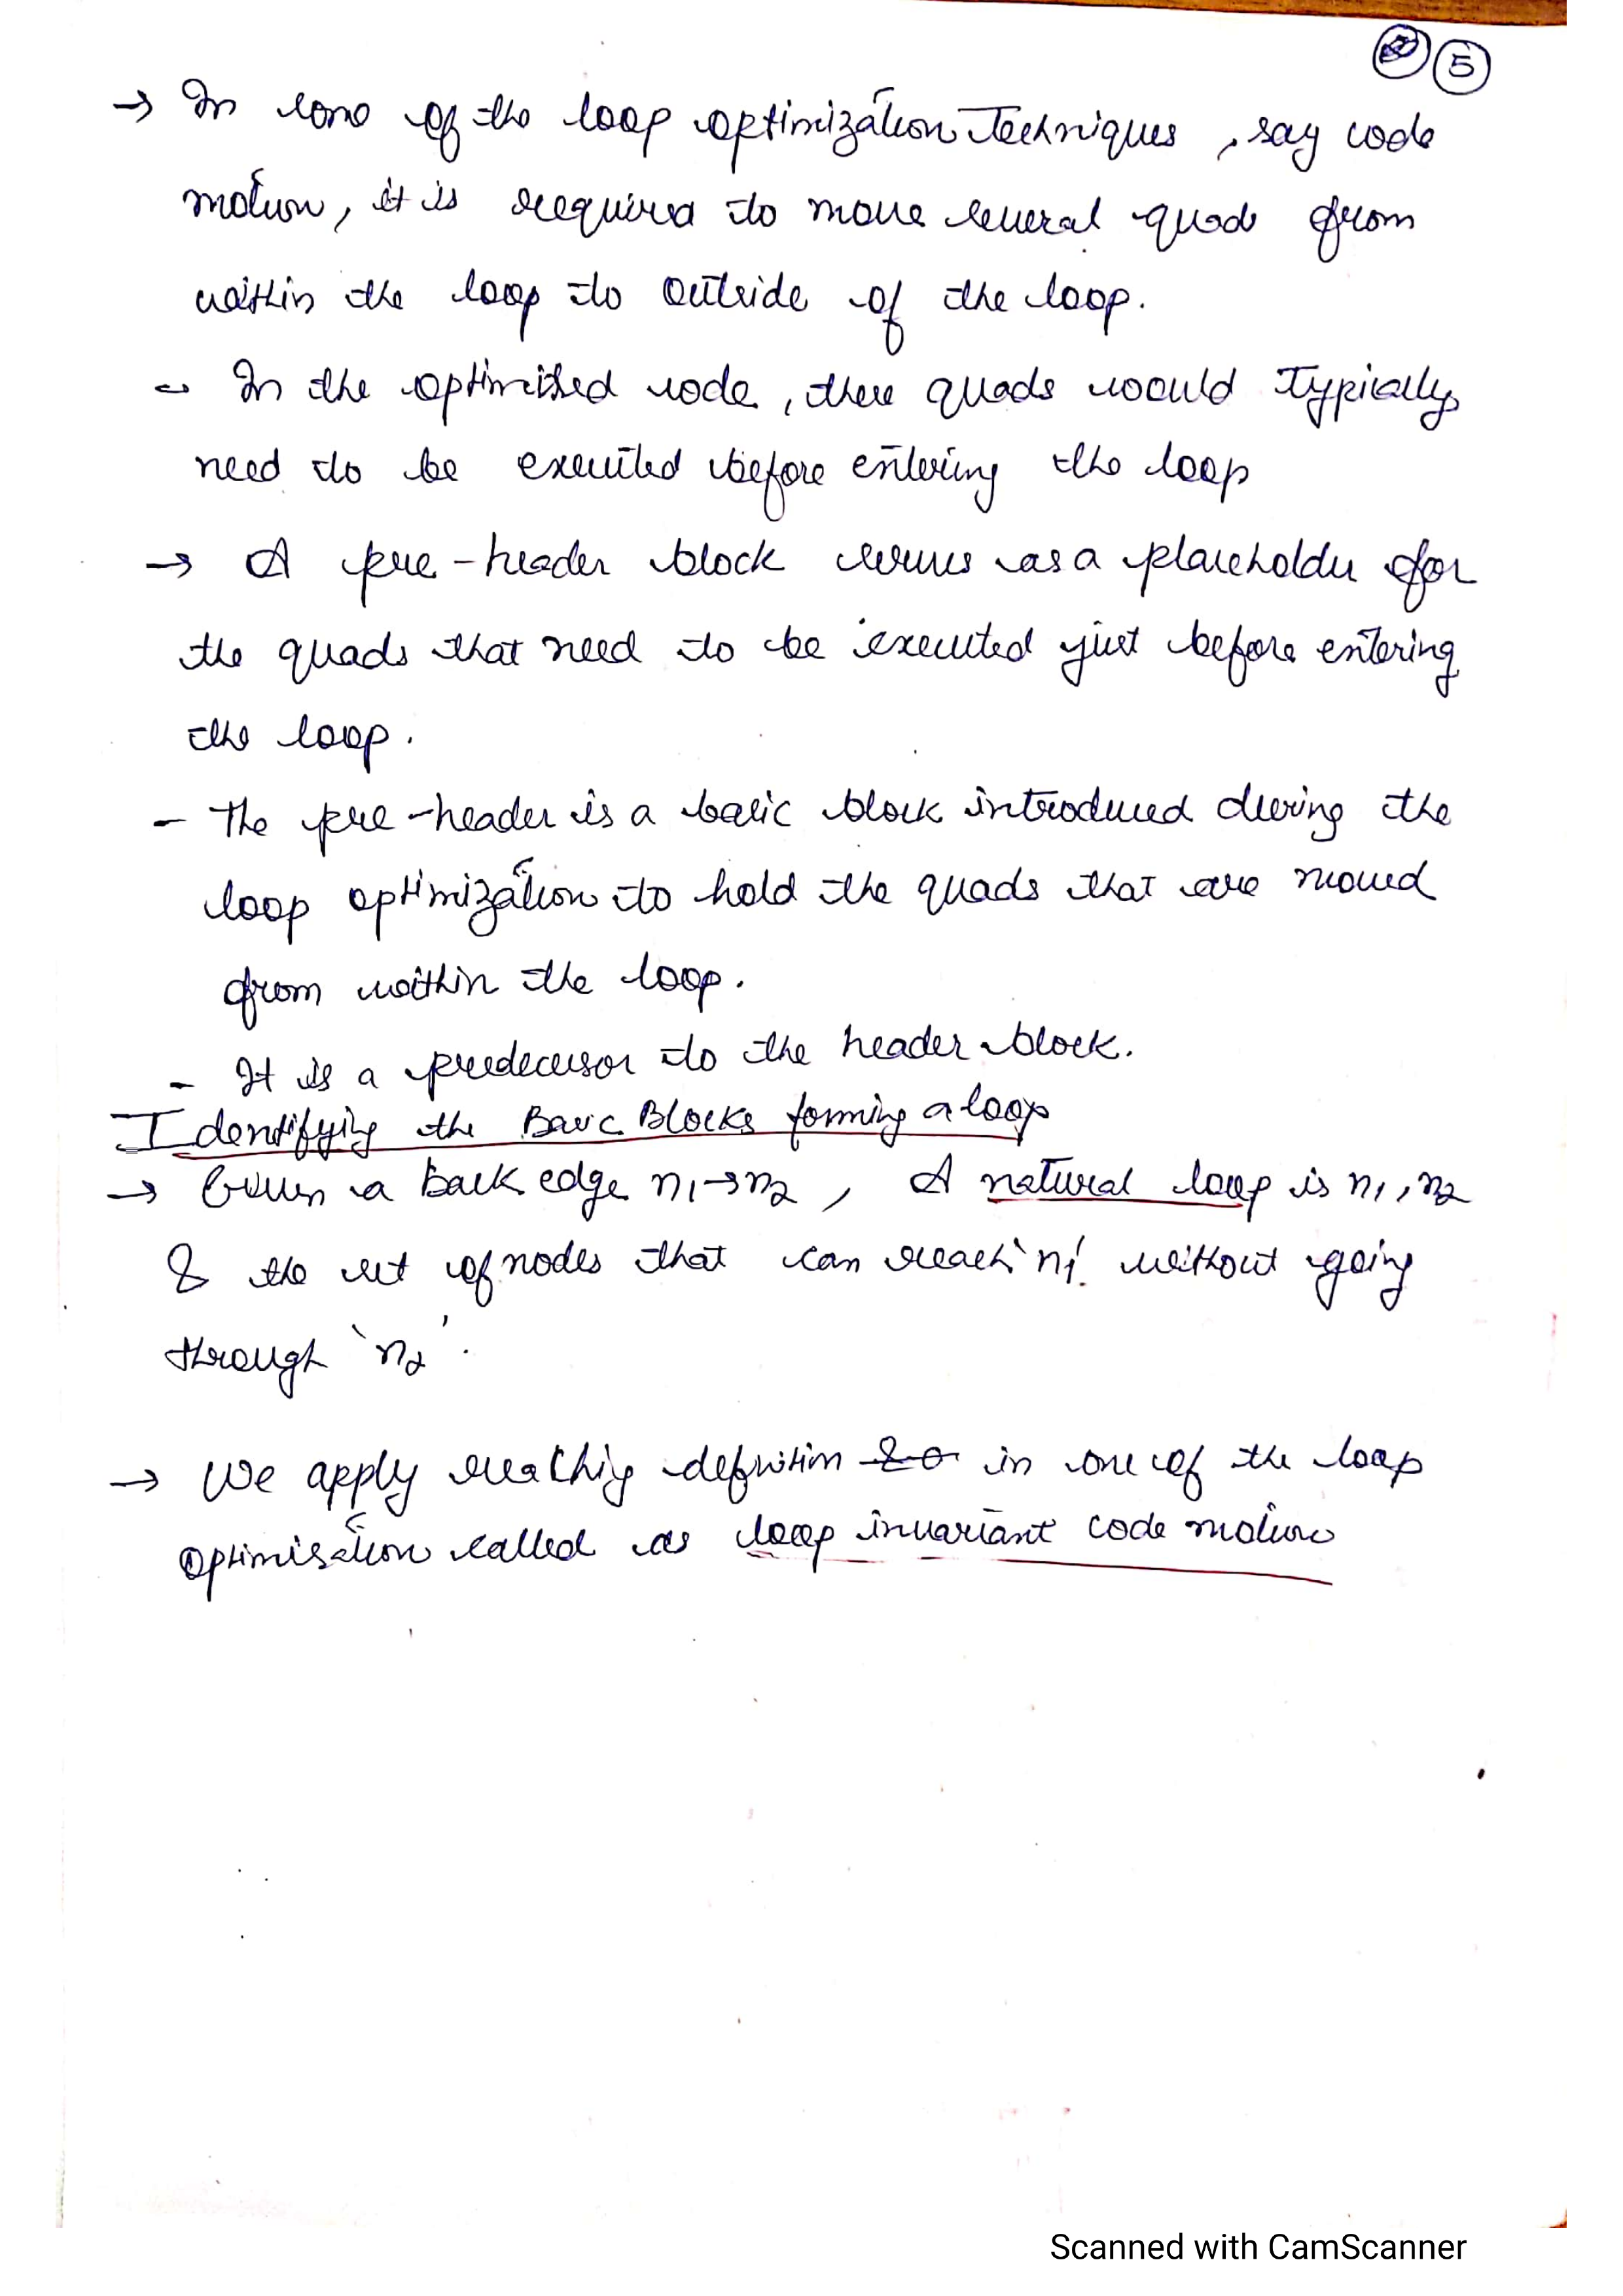 5
→ In some of the loop optimization Techniques, say code
motion, it is required to move several quads from
within the loop to outside of the loop.
- In the optimized code, these quads would typically
need to be executed before entering the loop
→ A pre-header block serves as a placeholder for
the quads that need to be executed just before entering
the loop.
- The pre-header is a basic block introduced during the
loop optimization to hold the quads that are moved
from within the loop.
- It is a predecessor to the header block.
Identifying the Basic Blocks forming a loop
→ Given a back edge n1→n2, A natural loop is n1, n2
& the set of nodes that can reach 'n1' without going
through 'n2'.
→ We apply reaching definition in one of the loop
optimisation called as loop invariant code motion
Scanned with CamScanner